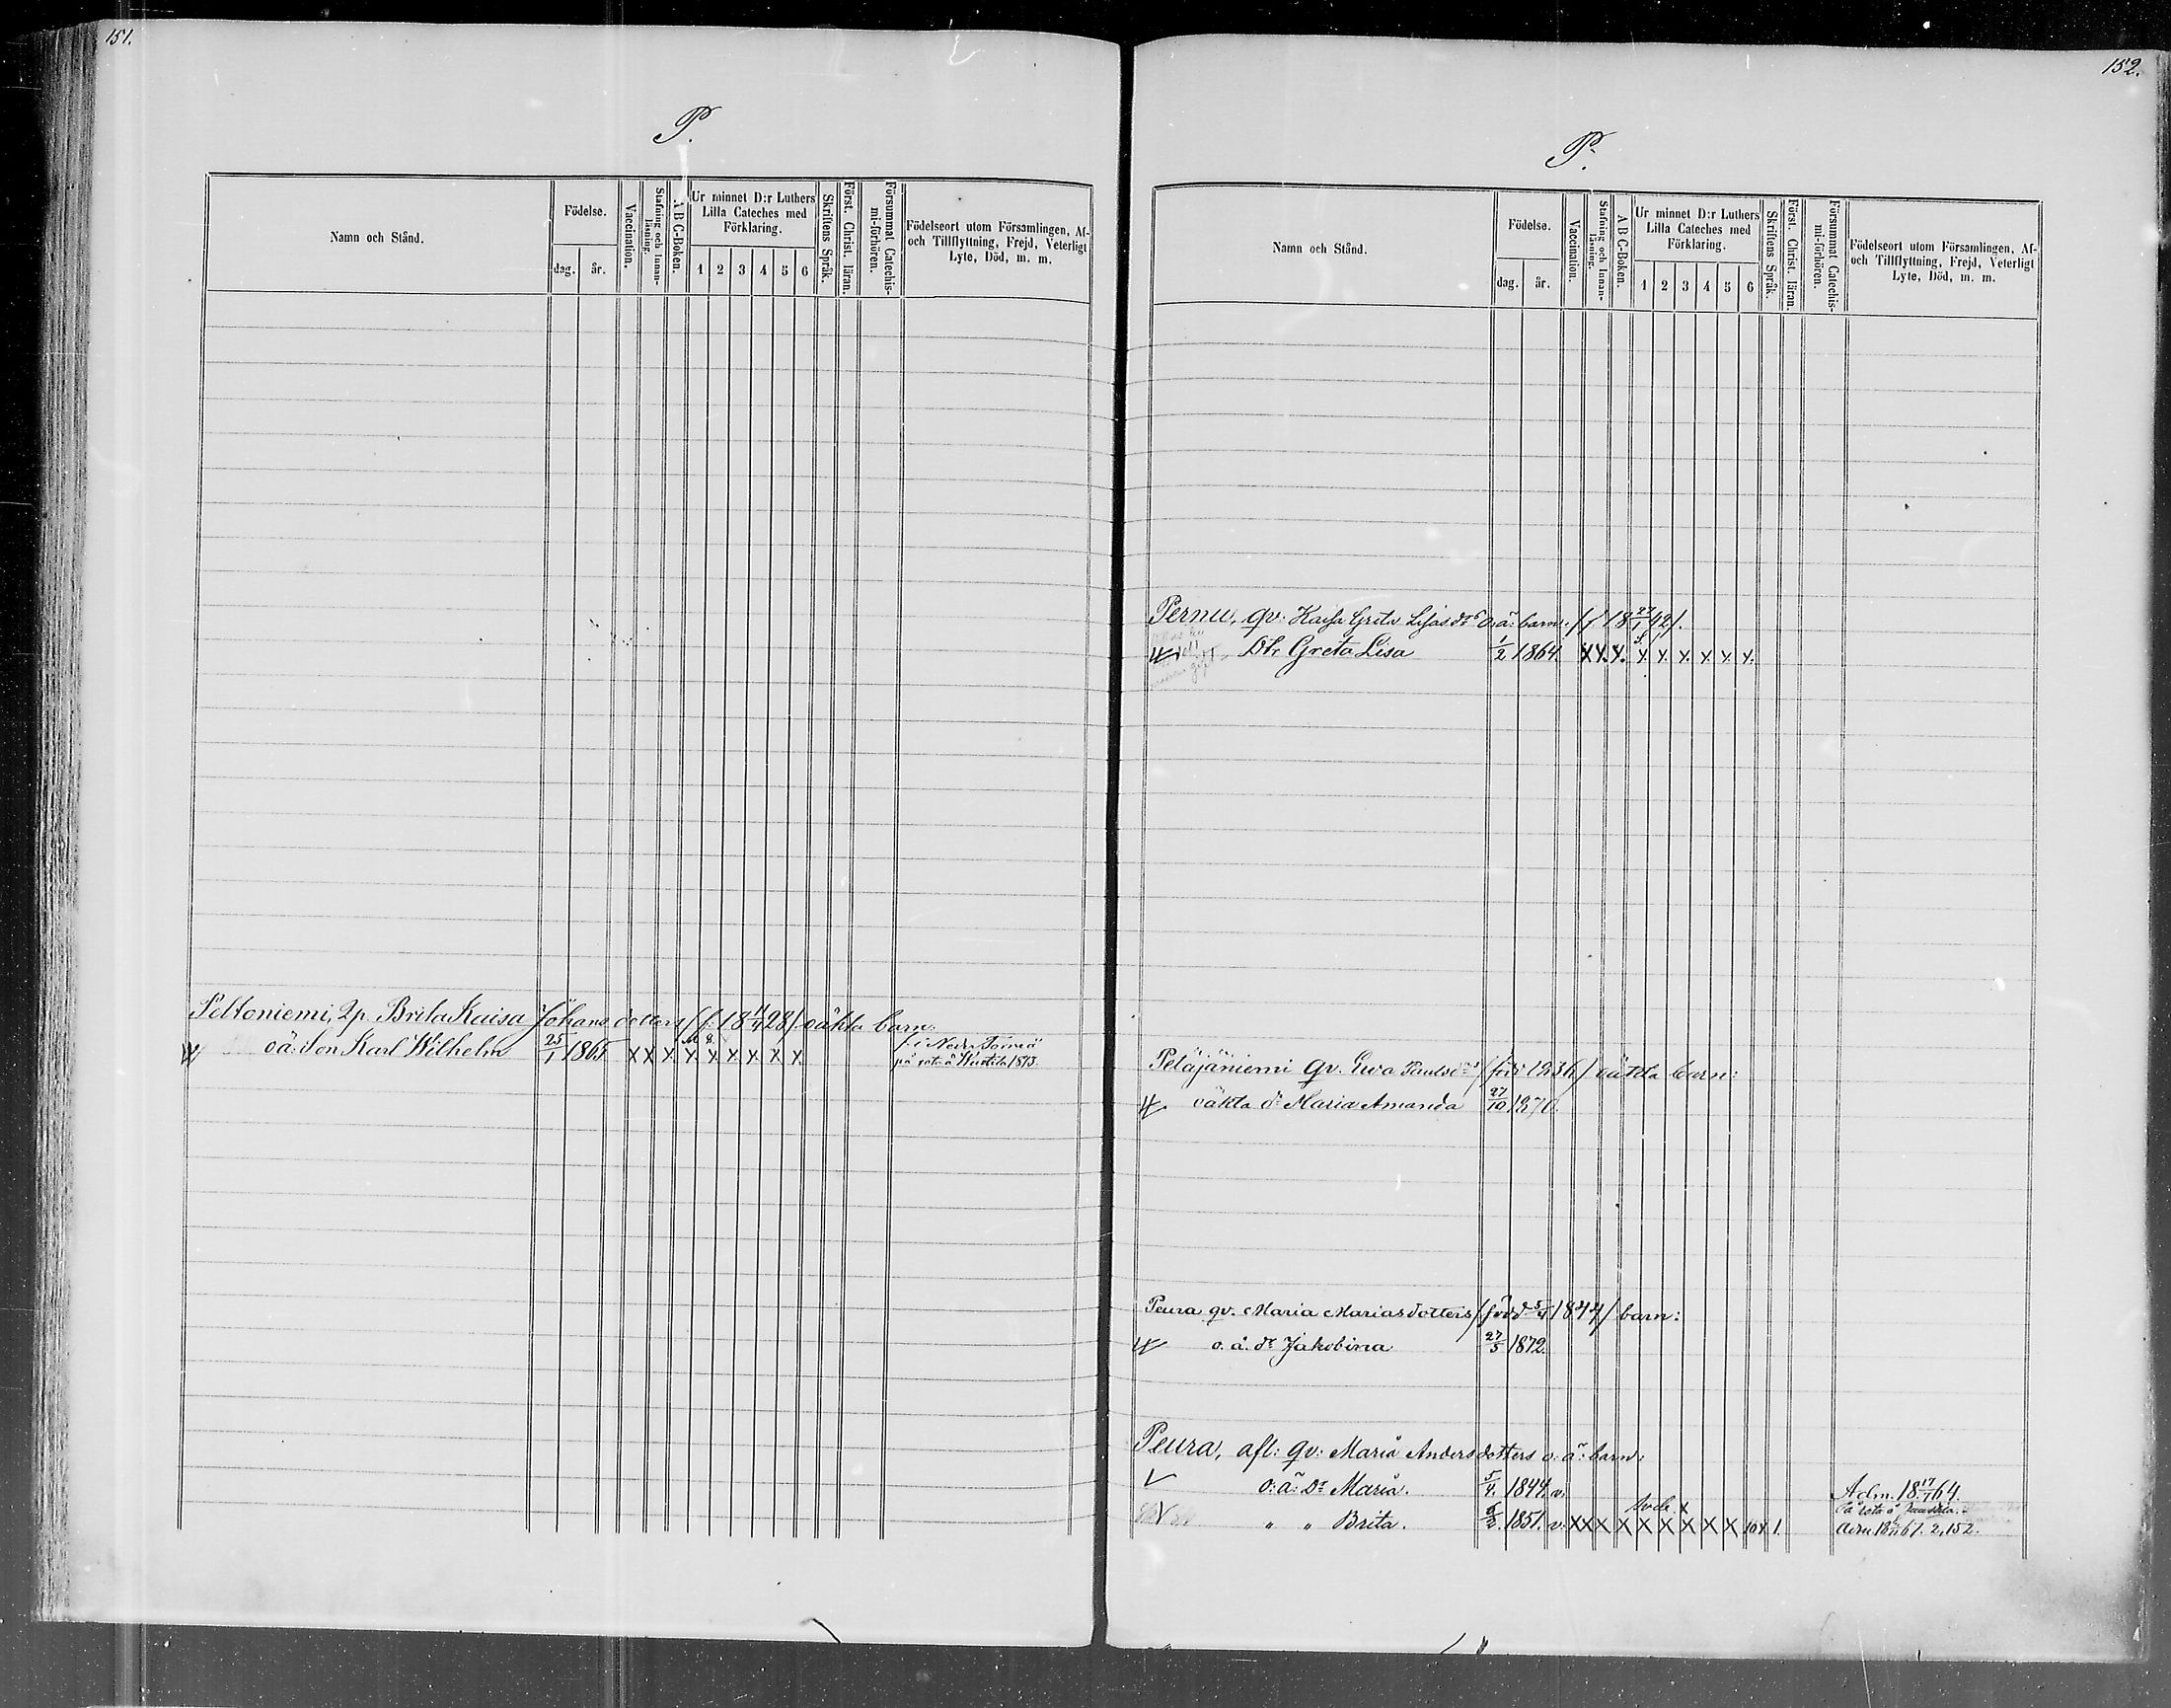 151.
P.
Namn och Stånd.
Födelse.
dag.
år.
Vaccination.
Stafning och Innan-
läsning.
A B C-Boken.
Ur minnet D:r Luthers
Lilla Cateches med
Förklaring.
1 2 3 4 5 6
Skriftens Språk.
Först. Christ. läran.
Försummat Catechis-
mi-förhören.
Födelseort utom Församlingen, Af-
och Tillflyttning, Frejd, Veterligt
Lyte, Död, m. m.
Peltoniemi, 2p. Brita Kaisa Johans dotters oäkta barn:
oä: Son Karl Wilhelm 25/1 1865 X X X X X X X X X
f. i Neder Torneå
1873.
152.
P.
Namn och Stånd.
Födelse.
dag.
år.
Vaccination.
Stafning och Innan-
läsning.
A B C-Boken.
Ur minnet D:r Luthers
Lilla Cateches med
Förklaring.
1 2 3 4 5 6
Skriftens Språk.
Först. Christ. läran.
Försummat Catechis-
mi-förhören.
Födelseort utom Församlingen, Af-
och Tillflyttning, Frejd, Veterligt
Lyte, Död, m. m.
Pernu, qv: Kaisa Greta Lisasdrs o: ä: barn: /f 18 27/1 42/.
Dtr Greta Lisa 1/2 1864. X X. X. X. X. X. X. X. X.
Peläjäniemi qv. Ewa /född 1836/ oäkta barn:
oäkta dr Maria Amanda 27/10 1870.
Peura qv. Maria Mariasdotters /född 5/4 1844/ barn:
o. ä. dr Jakobina 27/5 1872.
Peura, afl: qv: Maria Andersdotters o: ä: barn:
o: ä: Dr Maria. 5/4. 1844. v. Adm. 18 17/1 64.
" " Brita. 1851. v. X X X X X X X X X